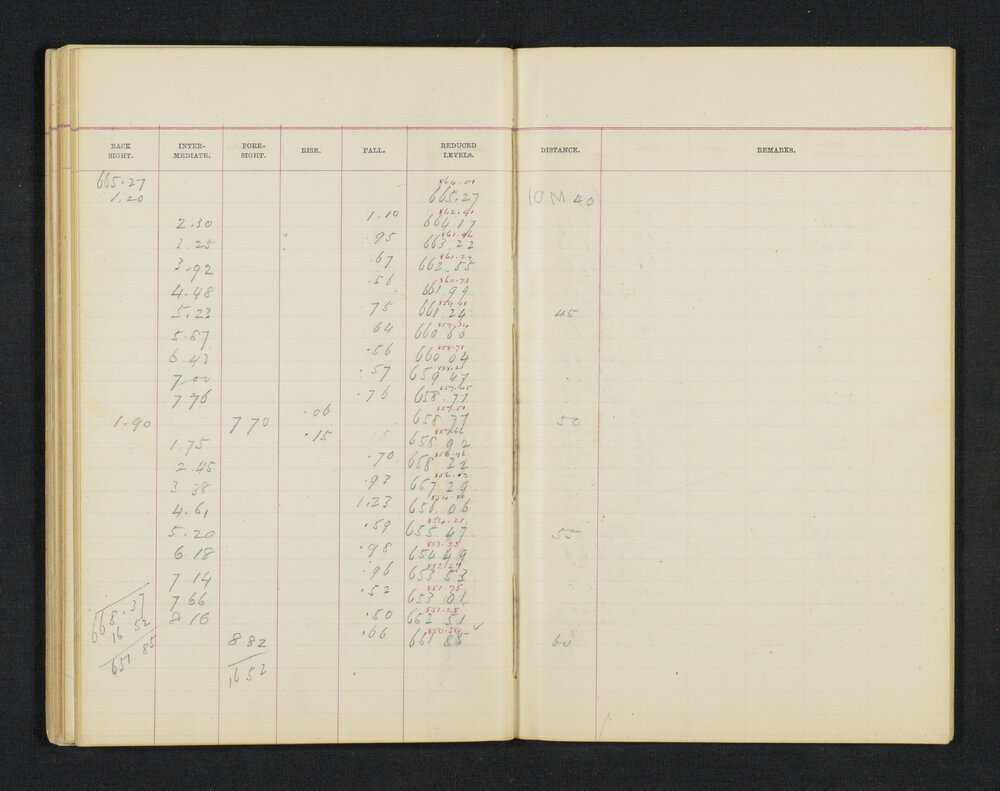 BACK SIGHT. INTER- MEDIATE. FORE- SIGHT. RISE. FALL. REDUCED LEVELS. DISTANCE. REMARKS.
864.01
665.27 665.27 10 M 40
1.20
862.91
2.30 1.10 664 17
861.96
3.25 .95 663.22
861.29
3.92 .67 662.55
860.73
4.48 .56 661 99
5.23 .75 661.24 45
859.34
5.87 .64 660 60
858.78
6.43 .56 660 04
858.21
7.00 .57 659 47
857.45
7 76 .76 658.71
857.51
1.90 7 70 .06 658 77 50
857.66
1 75 .15 658 92
856.96
2.45 .70 658 22
856.03
3 38 .93 657 29
854.80
4.61 1.23 656 06
854.21
5.20 .59 655 47 55
853.23
6.18 .98 654 49
852.27
7.14 .96 653 53
851.75
7 66 .52 653 01
851.25
8.16 .50 652 51
668.37
16 52
651 85
850.59
8 82 .66 651 85 60
16 52